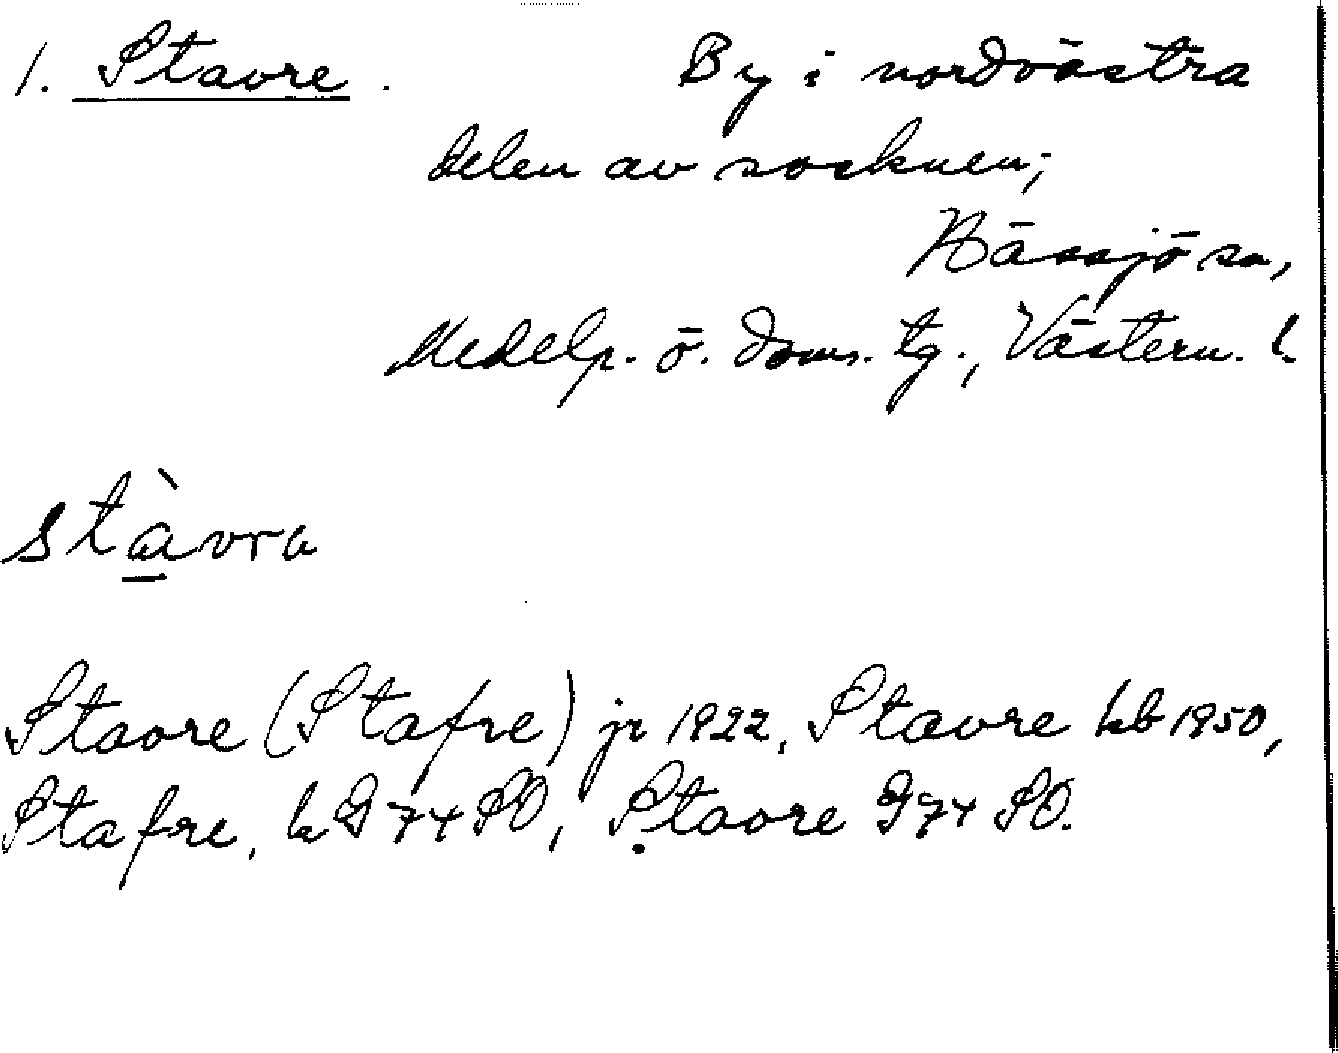 1. Stavre. By i nordvästra
delen av socknen;
Hässjö sn,
Medelp. ö. doms. tg., Västern. l.
stàvra
Stavre (Stafre) jr 1922, Stavre hb 1950,
Stafre, h G 74 SO, Stavre G 74 SO.